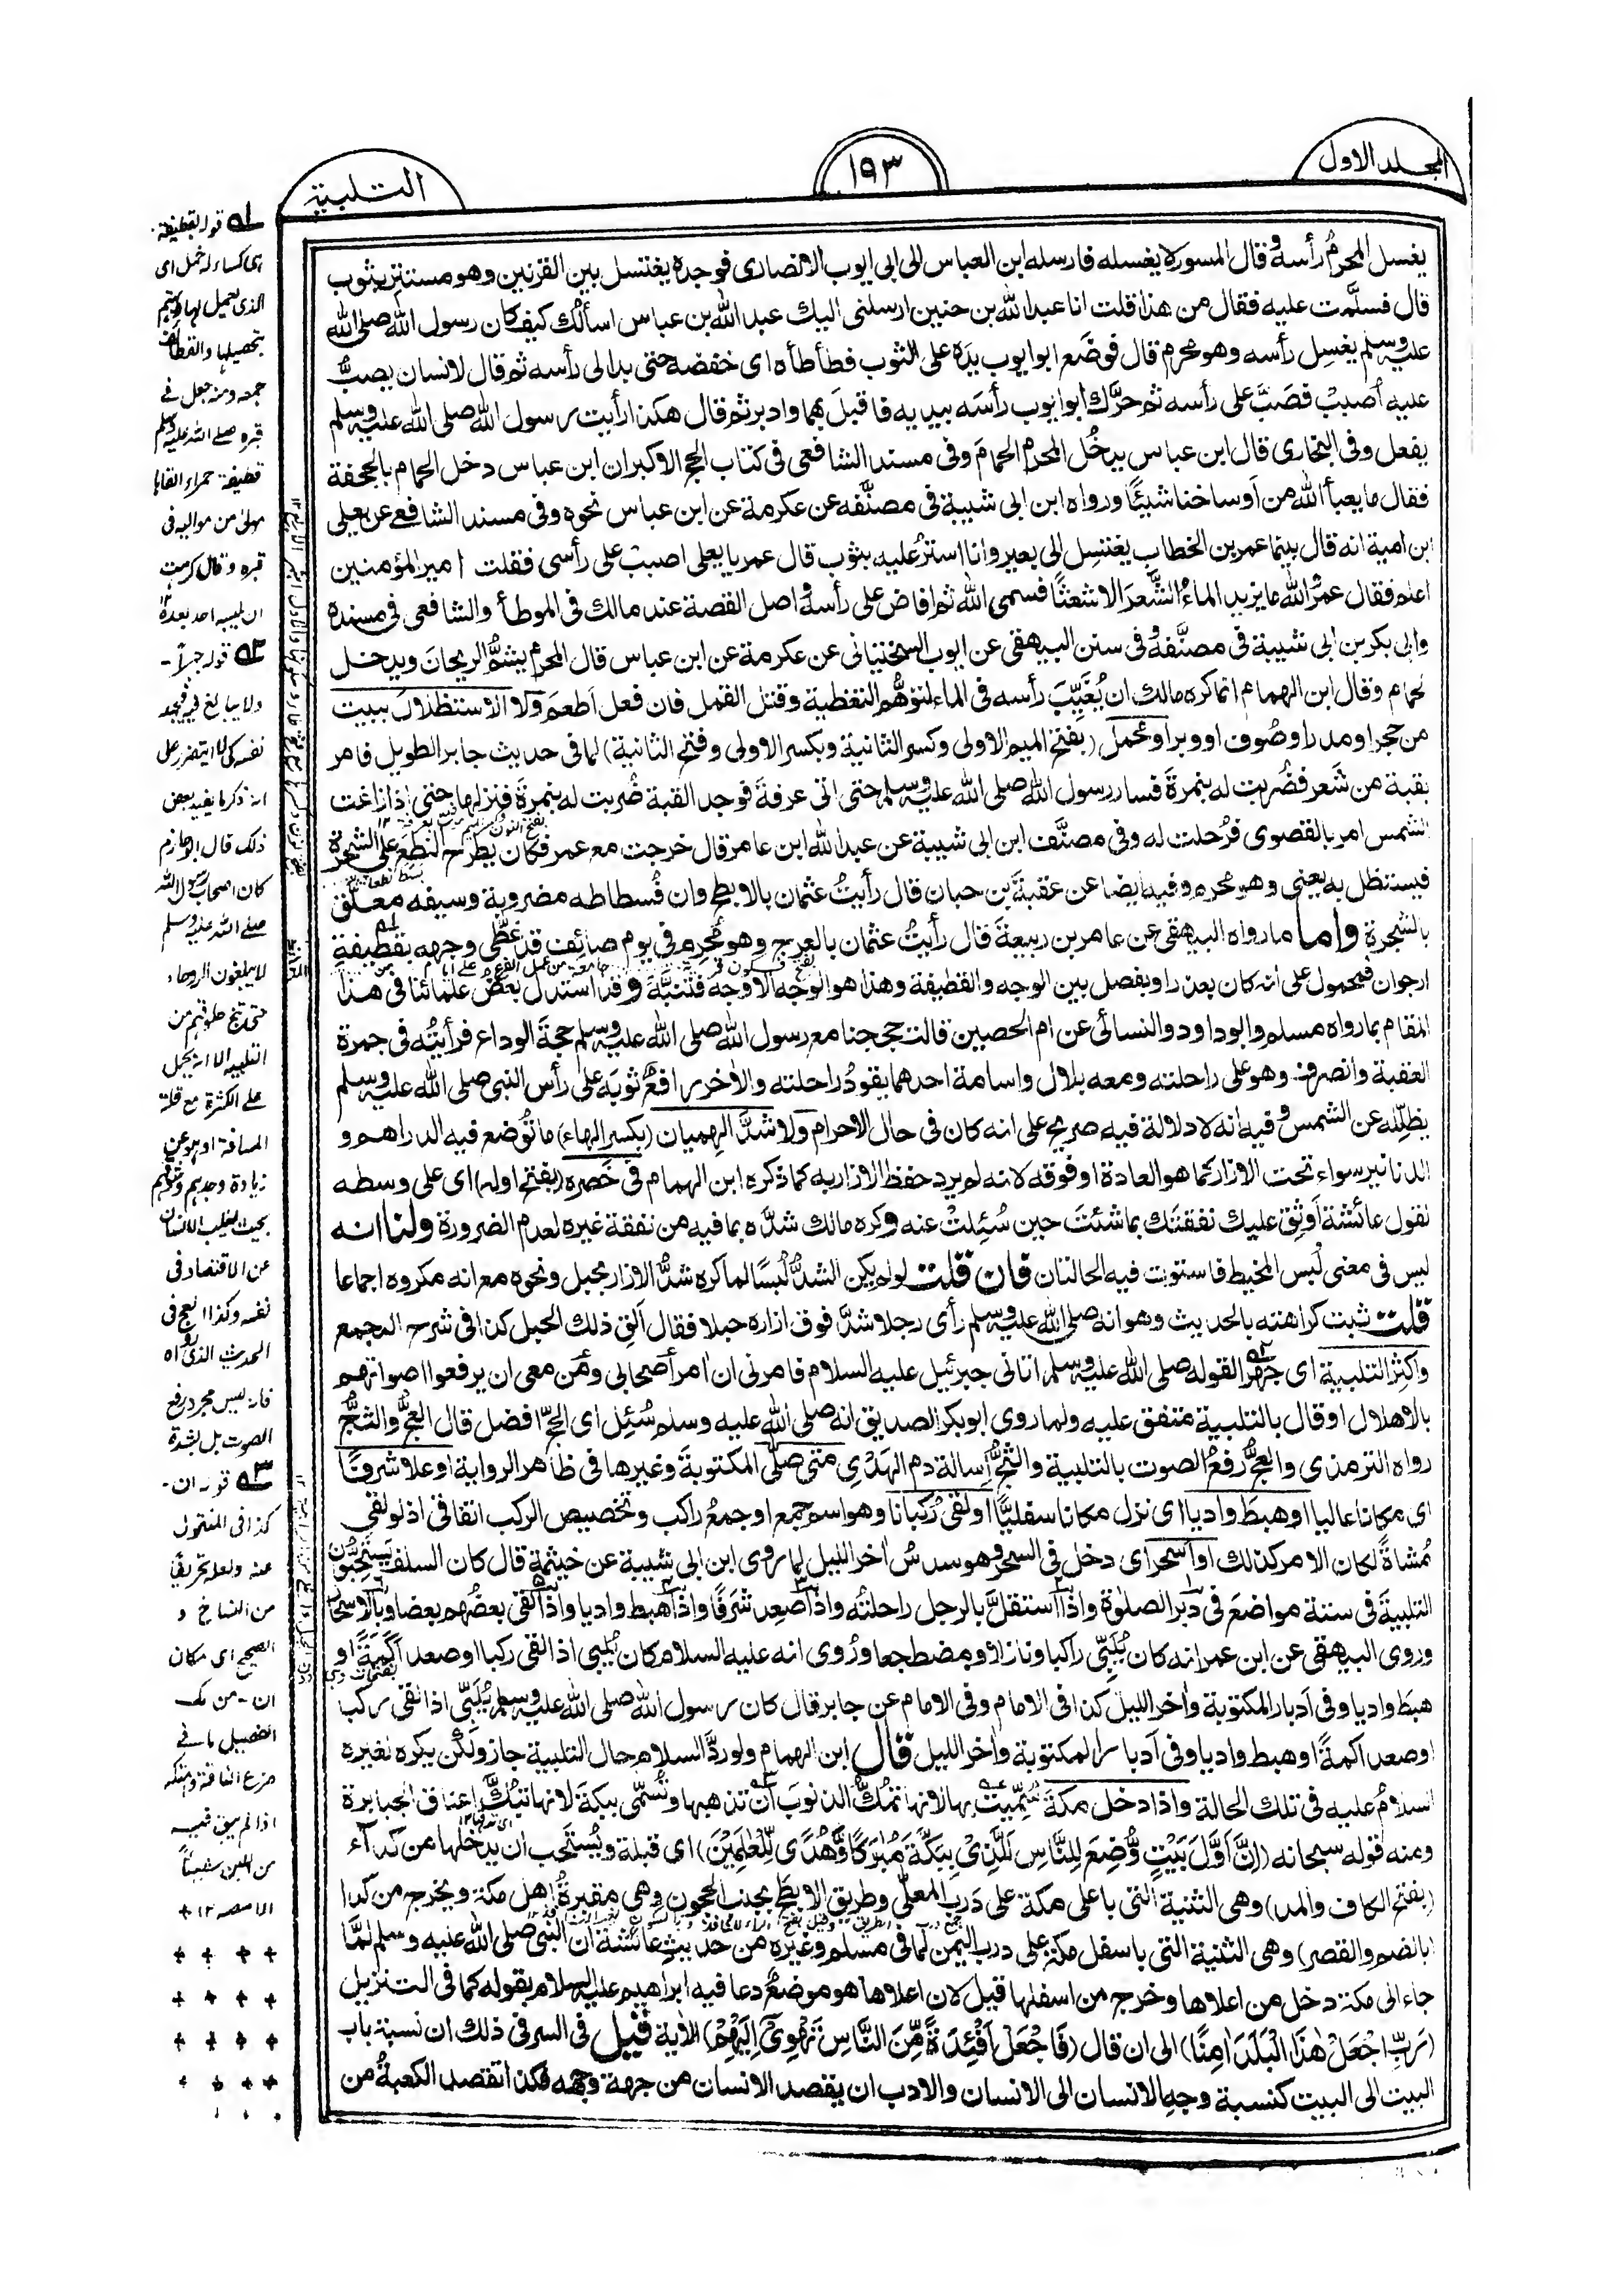 المجلد الاول
١٩٣
التلبية
يغسل المحرمُ رأسه وقال المسور لا يغسله فارسله ابن العباس الى ابى ايوب الانصارى فوجده يغتسل بين القرنين وهو مستتر بثوب
قال فسلّمت عليه فقال من هذا قلت انا عبد الله بن حنين ارسلنى اليك عبد الله بن عباس اسألك كيف كان رسول الله صلى الله
عليه وسلم يغسل رأسه وهو محرم قال فوضع ابو ايوب يده على الثوب فطأطأه اى خفضه حتى بدا لى رأسه ثم قال لانسان يصبُّ
عليه اُصبُبْ فصَبَّ على رأسه ثم حرَّك ابو ايوب رأسَه بيديه فاقبلَ بهما وادبر ثم قال هكذا رأيت رسول الله صلى الله عليه وسلم
يفعل وفى البخارى قال ابن عباس يدخُل المحرم الحمامَ وفى مسند الشافعى فى كتاب الحج الاكبر ان ابن عباس دخل الحمام بالجحفة
فقال ما يعبأ الله من اَوساخنا شيئًا ورواه ابن ابى شيبة فى مصنَّفه عن عكرمة عن ابن عباس نحوه وفى مسند الشافعے عن يعلى
ابن امية انه قال بينما عمر بن الخطاب يغتسل الى بعير وانا استرُ عليه بثوب قال عمر يا يعلى اصبب على رأسى فقلت امير المؤمنين
اعلم فقال عمرُ والله ما يزيد الماءُ الشَّعرَ الا شعثًا فسمى الله ثم افاض على رأسه واصل القصة عند مالك فى الموطأ والشافعى فى مسنده
وابى بكر بن ابى شيبة فى مصنَّفه وفى سنن البيهقى عن ايوب السختيانى عن عكرمة عن ابن عباس قال المحرم يشمُّ الريحانَ ويدخل
الحمام وقال ابن الهمام انما كره مالك ان يُغَيِّبَ رأسه فى الماء لتوهُّم التغطية وقتل القمل فان فعل اَطعمَ ولا الاستظلال ببيت
من حجر او مدر او صُوف او وبر او محمل (بفتح الميم الاولى وكسر الثانية وبكسر الاولى وفتح الثانية) لما فى حديث جابر الطويل فامر
بقبة من شَعر فضُربت له بنمرةَ فسار رسول الله صلى الله عليه وسلم حتى اتى عرفةَ فوجد القبة ضُربت له بنمرةَ فنزلها حتى اذا زاغت
الشمس امر بالقصوى فرُحلت له وفى مصنَّف ابن ابى شيبة عن عبد الله ابن عامر قال خرجت مع عمر فكان يطرح النطع على الشجرة
فيستظل به يعنى وهو محرم وفيه ايضا عن عقبةَ بن حبان قال رأيتُ عثمان بالابطح وان فُسطاطه مضروبة وسيفه معلَّق
بالشجرة واما ما رواه البيهقى عن عامر بن ربيعةَ قال رأيتُ عثمان بالعرج وهو مُحرِم فى يوم صائِف قد غطّى وجهه بقطيفة
ارجوان فمحمول على انه كان بعذر او بفصل بين الوجه والقطيفة وهذا هو الوجه الاوجه فتنبَّهْ وقد استدل بعضُ علمائنا فى هذا
المقام بما رواه مسلم وابو داود والنسائى عن ام الحصين قالت حججنا مع رسول الله صلى الله عليه وسلم حجةَ الوداع فرأيتُه فى جمرة
العقبة وانصرف وهو على راحلته ومعه بلال واسامة احدهما يقودُ راحلته والاٰخر رافعٌ ثوبَه على رأس النبى صلى الله عليه وسلم
يظلِّله عن الشمس وفيه انه لا دلالة فيه صريح على انه كان فى حال الاحرام ولا شدَّ الهميان (بكسر الهاء) ما تُوضع فيه الدراهم و
الدنانير سواء تحت الازار كما هو العادة او فوقه لانه لم يرد حفظ الازار به كما ذكره ابن الهمام فى خَصره (بفتح اوله) اى على وسطه
لقول عائشة اَوثِق عليك نفقتك بما شئتَ حين سُئِلتْ عنه وكره مالك شدَّه بما فيه من نفقة غيره لعدم الضرورة ولنا انه
ليس فى معنى لُبس المخيط فاستوت فيه الحالتان فان قلت لو لم يكن الشدُّ لُبسًا لما كره شدُّ الازار بحبل ونحوه مع انه مكروه اجماعا
قلت ثبت كراهته بالحديث وهو انه صلى الله عليه وسلم رأى رجلا شدَّ فوق ازاره حبلا فقال اَلقِ ذلك الحبل كذا فى شرح المجمع
واكثِر التلبية اى جهرًا لقوله صلى الله عليه وسلم اتانى جبرئيل عليه السلام فامرنى ان اٰمر اصحابى ومَن معى ان يرفعوا اصواتهم
بالاهلال او قال بالتلبية متفق عليه ولما روى ابوبكر الصديق انه صلى الله عليه وسلم سُئِل اى الحجّ افضل قال العجُّ والثجُّ
رواه الترمذى والعجُّ رفعُ الصوت بالتلبية والثجُّ اِسالة دم الهَدْىِ متى صلّى المكتوبةَ وغيرها فى ظاهر الرواية او علا شرفًا
اى مكانا عاليا او هبطَ واديا اى نزل مكانا سفليًّا او لقىَ رُكبانا وهو اسم جمع او جمعُ راكب وتخصيص الركب اتفاقى اذ لو لقى
مُشاةً لكان الامر كذلك او اَسحر اى دخل فى السحر وهو سدسُ اٰخر الليل لما روى ابن ابى شيبة عن خيثمة قال كان السلف يستحبُّون
التلبيةَ فى ستة مواضعَ فى دُبر الصلٰوة واذا استقلَّ بالرجل راحلتُه واذا صعِد شرَفًا واذا هبط واديا واذا القى بعضُهم بعضا وبالاسحار
وروى البيهقى عن ابن عمر انه كان يُلَبِّى راكبا ونازلا ومضطجعا ورُوى انه عليه السلام كان يُلبى اذا لقى ركبا او صعد اَكَمَةً او
هبَط واديا وفى اَدبار المكتوبة واٰخر الليل كذا فى الامام وفى الامام عن جابر قال كان رسول الله صلى الله عليه وسلم يُلَبِّى اذا لقى ركب
او صعد اكمةً او هبط واديا وفى اَدبار المكتوبة واٰخر الليل قال ابن الهمام ولو ردَّ السلام حال التلبية جاز ولٰكن يكره لغيره
السلامُ عليه فى تلك الحالة واذا دخل مكةَ سُمِّيت بها لانها تمُكُّ الذنوبَ اى تذهبها وتُسمّى ببكة لانها تبُكُّ اعناق الجبابرة
ومنه قوله سبحانه (اِنَّ اَوَّلَ بَيْتٍ وُّضِعَ لِلنَّاسِ لَلَّذِىْ بِبَكَّةَ مُبٰرَكًا وَّهُدًى لِّلْعٰلَمِيْنَ) اى قبلة ويُستحَب ان يدخلها من كداء
(بفتح الكاف والمد) وهى الثنية التى باعلى مكة على دَربِ المعلّى وطريق الابطح بجنب الحجون وهى مقبرةُ اهل مكة ويخرج من كدا
(بالضم والقصر) وهى الثنية التى باسفل مكة على درب اليمن لما فى مسلم وغيره من حديث عائشة ان النبى صلى الله عليه وسلم لمّا
جاء الى مكة دخل من اعلاها وخرج من اسفلها قيل لان اعلاها هو موضعٌ دعا فيه ابراهيم عليه السلام بقوله كما فى التنزيل
(رَبِّ اجْعَلْ هٰذَا الْبَلَدَ اٰمِنًا) الى ان قال (فَاجْعَلْ اَفْئِدَةً مِّنَ النَّاسِ تَهْوِىْٓ اِلَيْهِمْ) الاية قيل فى السر فى ذلك ان نسبة باب
البيت الى البيت كنسبة وجهِ الانسان الى الانسان والادب ان يقصد الانسان من جهة وجهه فكذا تقصد الكعبةُ من
قوله بقطيفة
هى كساء له خمل اى
الذى يعمل لها ويهتم
بتحصيلها والقطائف
جمعه ومنه جعل فے
قبره صلے الله عليه وسلم
قطيفة حمراء القاها
مولىً من مواليه فى
قبره وقال كرهت
ان يلبسه احد بعده ١٢
قوله جهرًا-
ولا يبالغ فيه فيجهد
نفسه كيلا يتضرر على
انه ذكر ما يفيد بعض
ذلك قال ابو حازم
كان اصحاب رسول الله
صلے الله عليه وسلم
لا يبلغون الروحاء
حتى تبح حلوقهم من
التلبية الا انه يحمل
على الكثرة مع قلة
المسافة او هو عن
زيادة وجدهم وشوقهم
بحيث يغلب الانسان
عن الاقتصاد فى
نفسه وكذا العج فى
الحديث الذى رواه
فانه ليس مجرد رفع
الصوت بل بشدة
قوله ان-
كذا فى المنقول
عنه ولعله تحريف
من النساخ و
الصحيح اى مكان
ان-من مك
الفصيل ما فے
ضرع الناقة ومتكه
اذا لم يبق فيه
من اللبن شيئاً
الا مصه ١٢